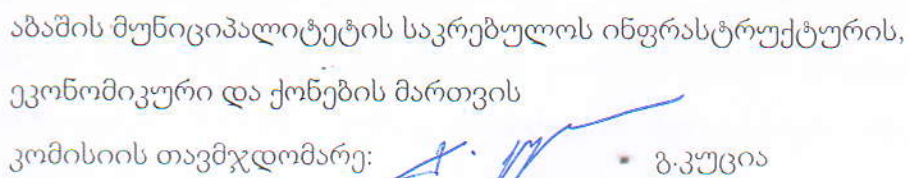 აბაშის მუნიციპალიტეტის საკრებულოს ინფრასტრუქტურის,
ეკონომიკური და ქონების მართვის
კომისიის თავმჯდომარე: გ.კუცია